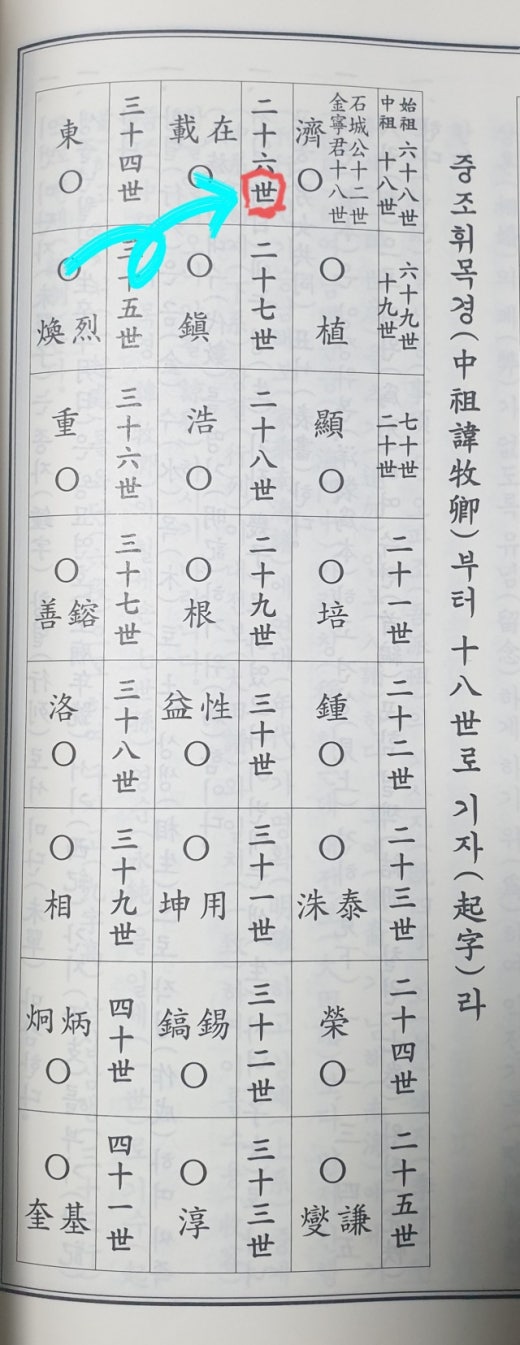 중조휘목경(中祖諱牧卿)부터 十八世로 기자(起字)라
始祖 六十八世
中祖 十八世
石城公十二世
金寧君十八世
濟○
六十九世
十九世
○植
七十世
二十世
顯○
二十一世
○培
二十二世
鍾○
二十三世
○泰洙
二十四世
榮○
二十五世
○謙燮
二十六世
在載○
二十七世
○鎭
二十八世
浩○
二十九世
○根
三十世
性益○
三十一世
○用坤
三十二世
錫鎬○
三十三世
○淳
三十四世
東○
三十五世
○烈煥
三十六世
重○
三十七世
○鎔善
三十八世
洛○
三十九世
○相
四十世
炳炯○
四十一世
○基奎